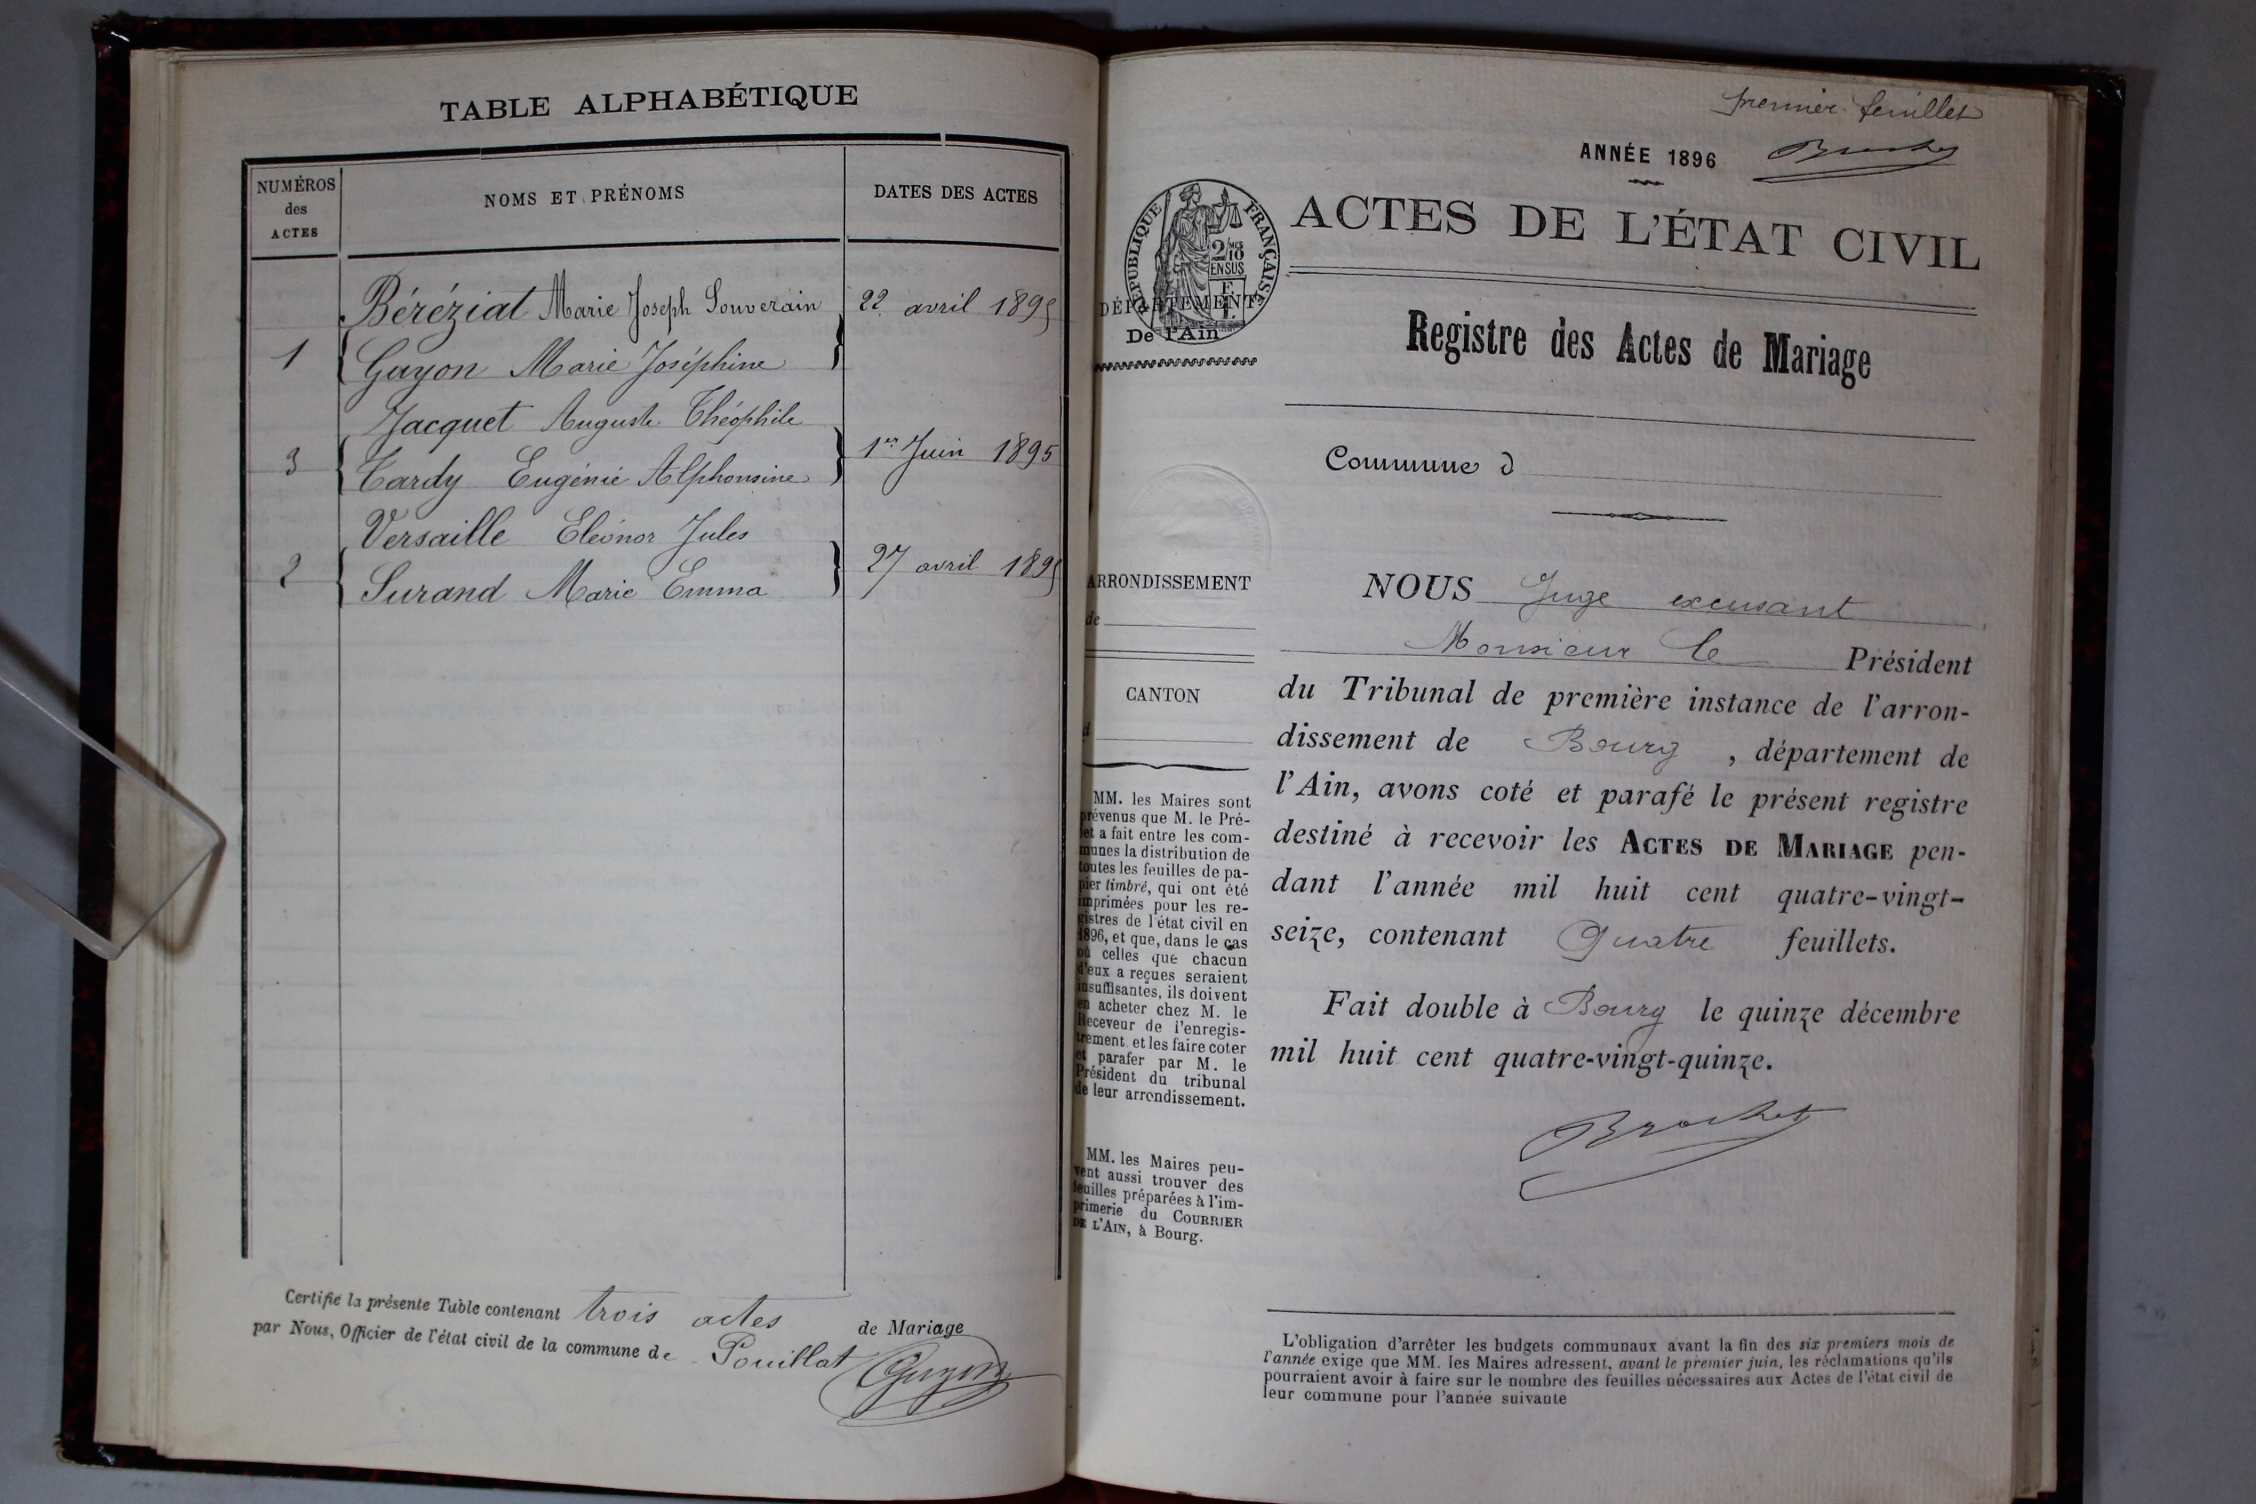 TABLE ALPHABÉTIQUE
NUMÉROS
des
ACTES
NOMS ET PRÉNOMS
DATES DES ACTES
Béréziat Marie Joseph Souverain
22 avril 1895
1
Guyon Marie Joséphine
Jacquet Auguste Théophile
3
1er Juin 1895
Tardy Eugénie Alphonsine
Versaille Eléonor Jules
2
27 avril 1895
Surand Marie Emma
Certifié la présente Table contenant trois actes de Mariage
par Nous, Officier de l'état civil de la commune de Pouillat
Guyon
premier feuillet
ANNÉE 1896
Brochet
RÉPUBLIQUE FRANÇAISE
2 10
EN SUS
ACTES DE L'ÉTAT CIVIL
DÉPARTEMENT
De l'Ain
Registre des Actes de Mariage
Commune d
ARRONDISSEMENT
de
CANTON
d
MM. les Maires sont
prévenus que M. le Pré-
fet a fait entre les com-
munes la distribution de
toutes les feuilles de pa-
pier timbré, qui ont été
imprimées pour les re-
gistres de l'état civil en
1896, et que, dans le cas
où celles que chacun
d'eux a reçues seraient
insuffisantes, ils doivent
en acheter chez M. le
Receveur de l'enregis-
trement et les faire coter
et parafer par M. le
Président du tribunal
de leur arrondissement.
MM. les Maires peu-
vent aussi trouver des
feuilles préparées à l'im-
primerie du COURRIER
DE L'AIN, à Bourg.
NOUS Juge excusant
Monsieur le Président
du Tribunal de première instance de l'arron-
dissement de Bourg, département de
l'Ain, avons coté et parafé le présent registre
destiné à recevoir les ACTES DE MARIAGE pen-
dant l'année mil huit cent quatre-vingt-
seize, contenant Quatre feuillets.
Fait double à Bourg le quinze décembre
mil huit cent quatre-vingt-quinze.
Brochet
L'obligation d'arrêter les budgets communaux avant la fin des six premiers mois de
l'année exige que MM. les Maires adressent, avant le premier juin, les réclamations qu'ils
pourraient avoir à faire sur le nombre des feuilles nécessaires aux Actes de l'état civil de
leur commune pour l'année suivante